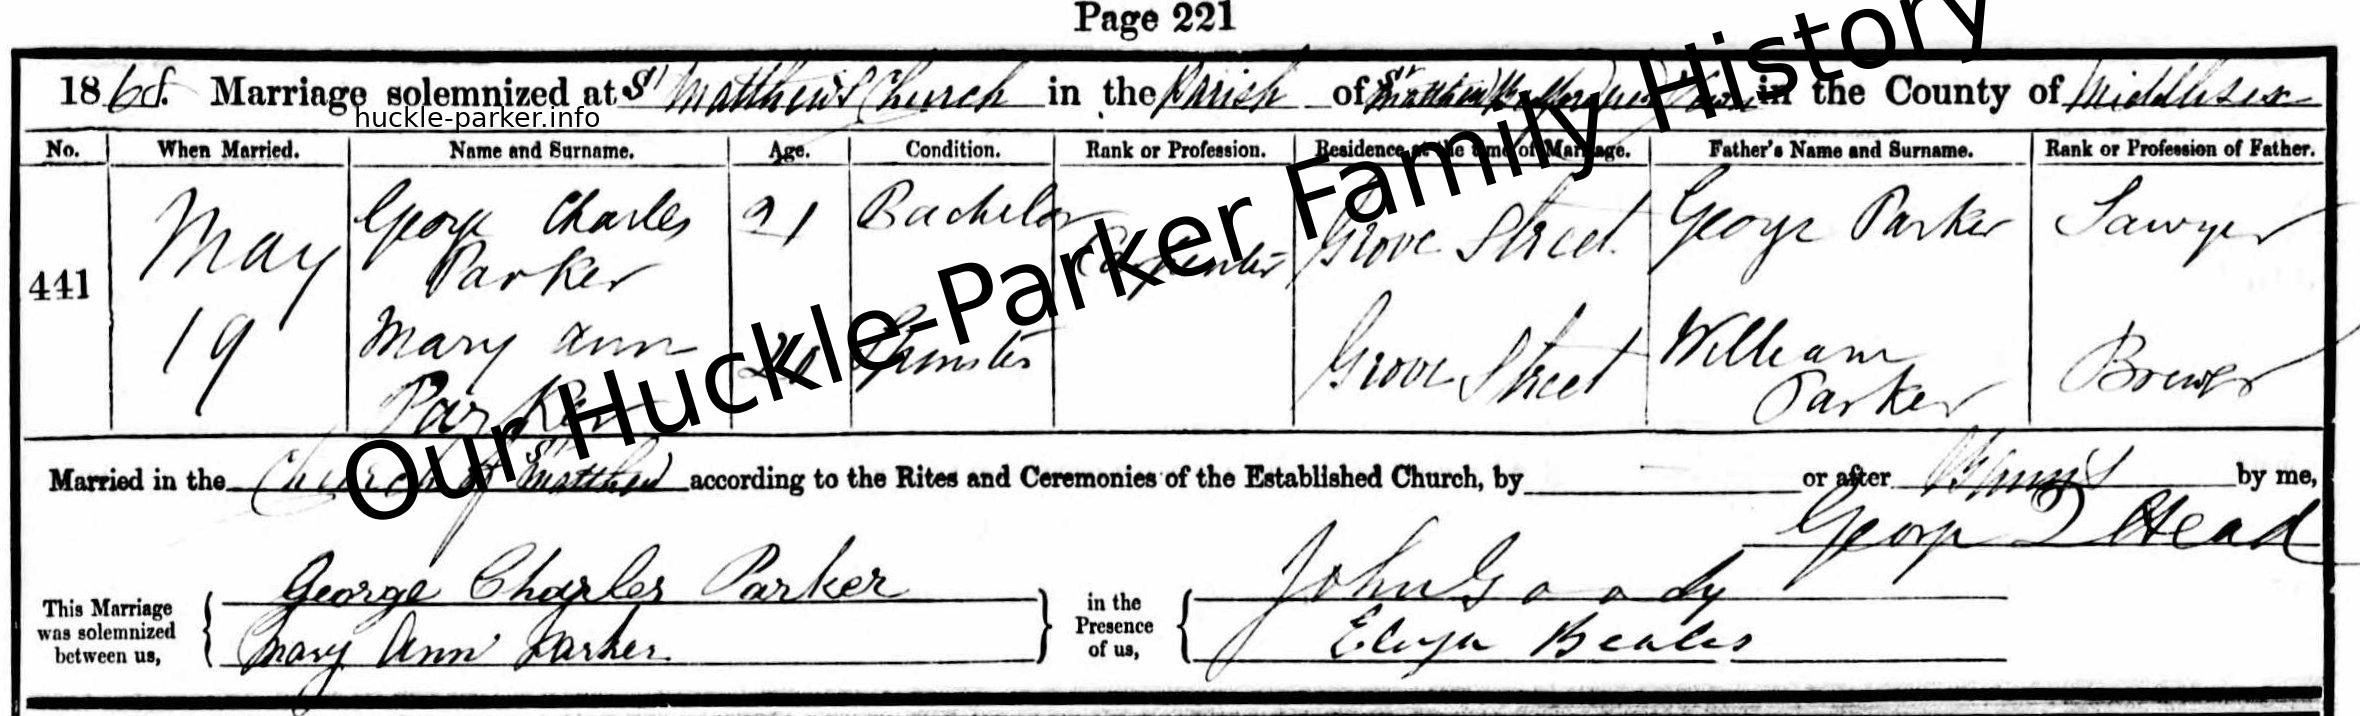 Page 221
1868. Marriage solemnized at St Matthew's Church in the Parish of St Matthew in the County of Middlesex
huckle-parker.info
No. When Married. Name and Surname. Age. Condition. Rank or Profession. Residence at the time of Marriage. Father's Name and Surname. Rank or Profession of Father.
441 May 19 George Charles Parker 21 Bachelor Carpenter Grove Street George Parker Sawyer
Mary Ann Parker 20 Spinster Grove Street William Parker Brewer
Our Huckle-Parker Family History
Married in the Church of St Matthew according to the Rites and Ceremonies of the Established Church, by or after Banns by me,
George Head
This Marriage was solemnized between us, George Charles Parker Mary Ann Parker in the Presence of us, John Goody Eliza Beales